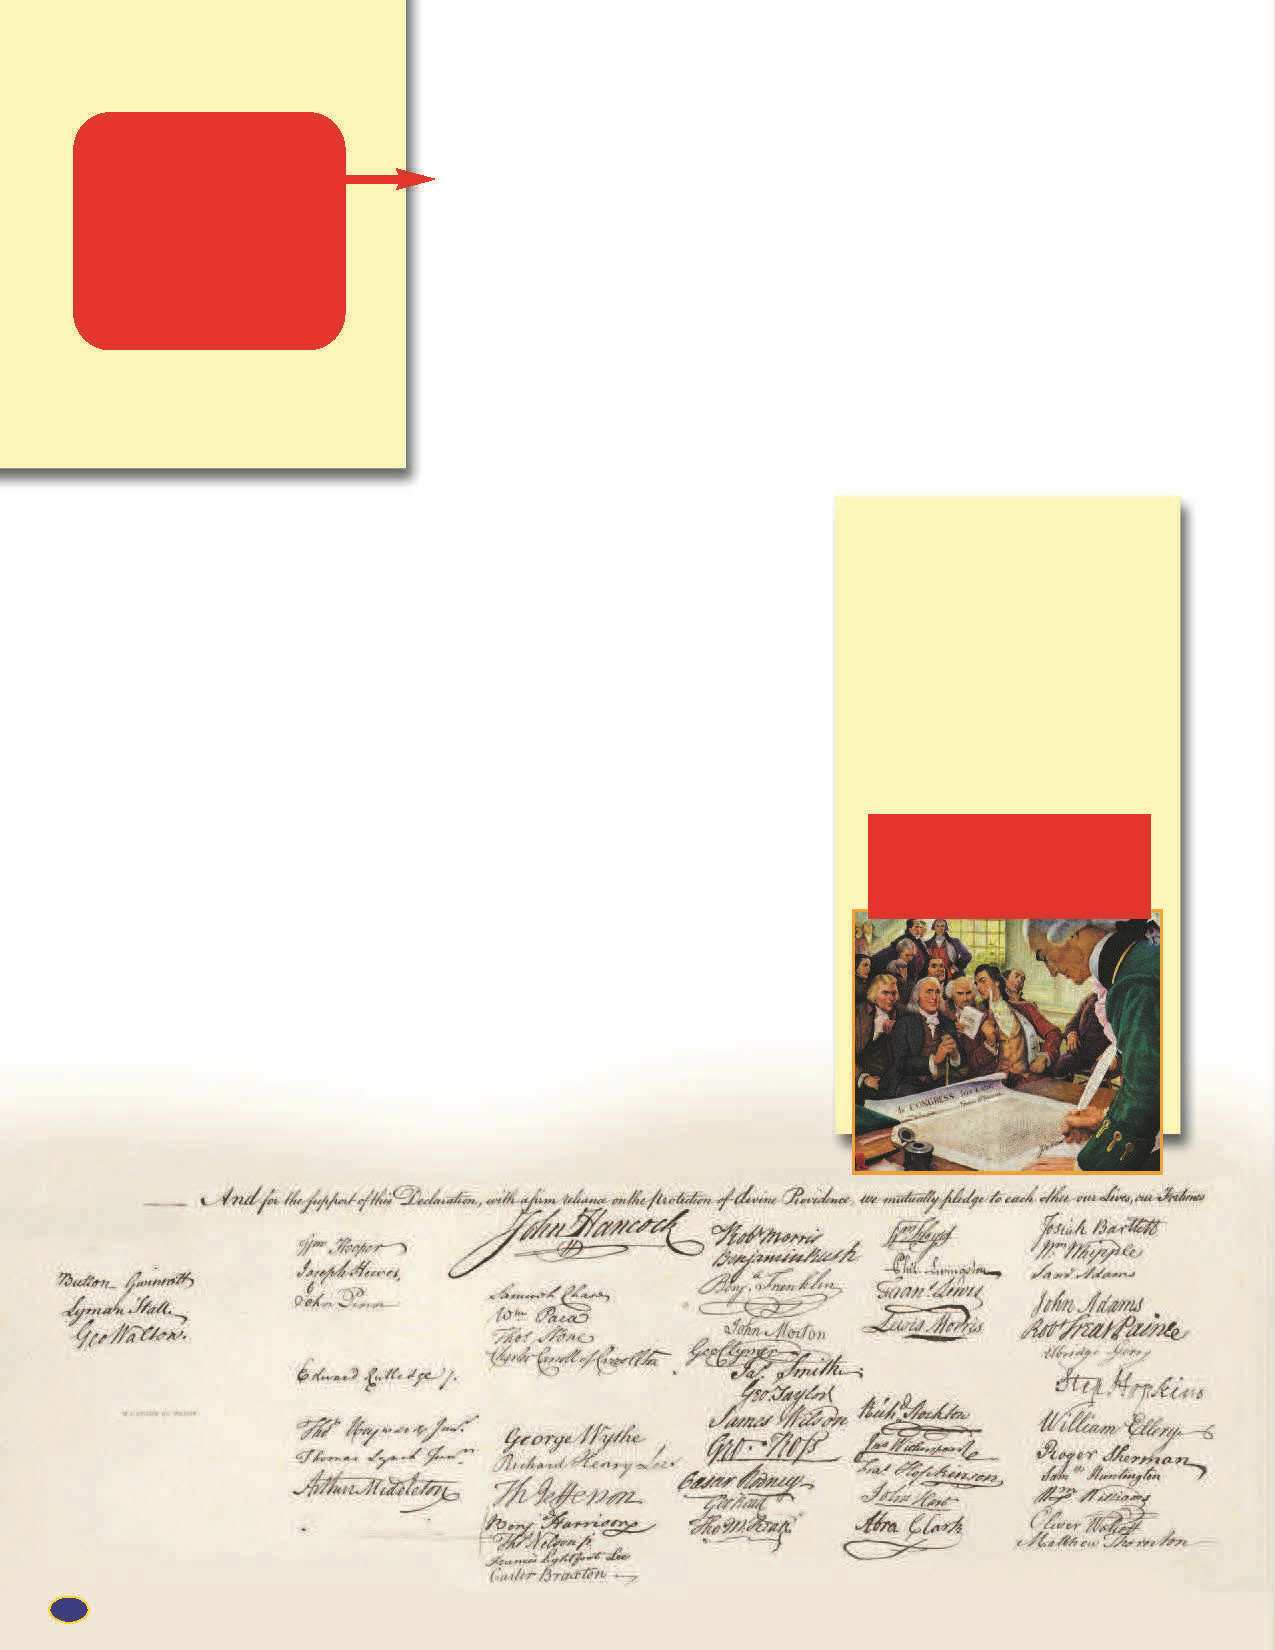 And for the support of this Declaration, with a firm reliance on the protection of divine Providence, we mutually pledge to each other our Lives, our Fortunes
Button Gwinnett
Lyman Hall.
Geo Walton.
Wm Hooper
Joseph Hewes,
John Penn
Edward Rutledge /.
Thos Heyward Junr.
Thomas Lynch Junr.
Arthur Middleton
John Hancock
Samuel Chase
Wm Paca
Thos Stone
Charles Carroll of Carrollton
George Wythe
Richard Henry Lee
Th Jefferson
Benj Harrison
Thos Nelson jr.
Francis Lightfoot Lee
Carter Braxton
Robt Morris
Benjamin Rush
Benja. Franklin
John Morton
Geo Clymer
Jas. Smith
Geo. Taylor
James Wilson
Geo. Ross
Caesar Rodney
Geo Read
Tho M:Kean
Wm Floyd
Phil. Livingston
Frans. Lewis
Lewis Morris
Richd. Stockton
Jno Witherspoon
Fras. Hopkinson
John Hart
Abra Clark
Josiah Bartlett
Wm. Whipple
Saml Adams
John Adams
Robt Treat Paine
Elbridge Gerry
Step Hopkins
William Ellery
Roger Sherman
Saml Huntington
Wm Williams
Oliver Wolcott
Matthew Thornton
IN CONGRESS, JULY 4, 1776.